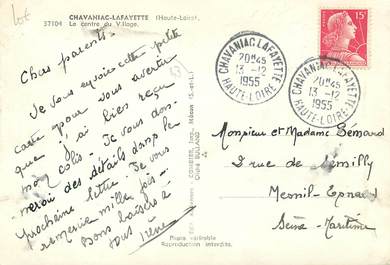 lot
CHAVANIAC-LAFAYETTE (Haute-Loire).
37104 Le centre du Village.
Chers parents
Je vous envoie cette petite
carte pour vous avertir
que j'ai bien reçu
mon colis. Je vous don-
nerai des détails dans la
prochaine lettre. Je vous
remercie mille fois.
Bons baisers à
tous Irène
COMBIER, Imp. Mâcon (S.-et-L.)
Photo véritable
Reproduction interdite.
CHAVANIAC LAFAYETTE
20H45
13-12
1955
HAUTE-LOIRE
CHAVANIAC LAFAYETTE
20H45
13-12
1955
HAUTE-LOIRE
15F
Monsieur et Madame
2 rue de
Mesnil-Esnard
Seine-Maritime